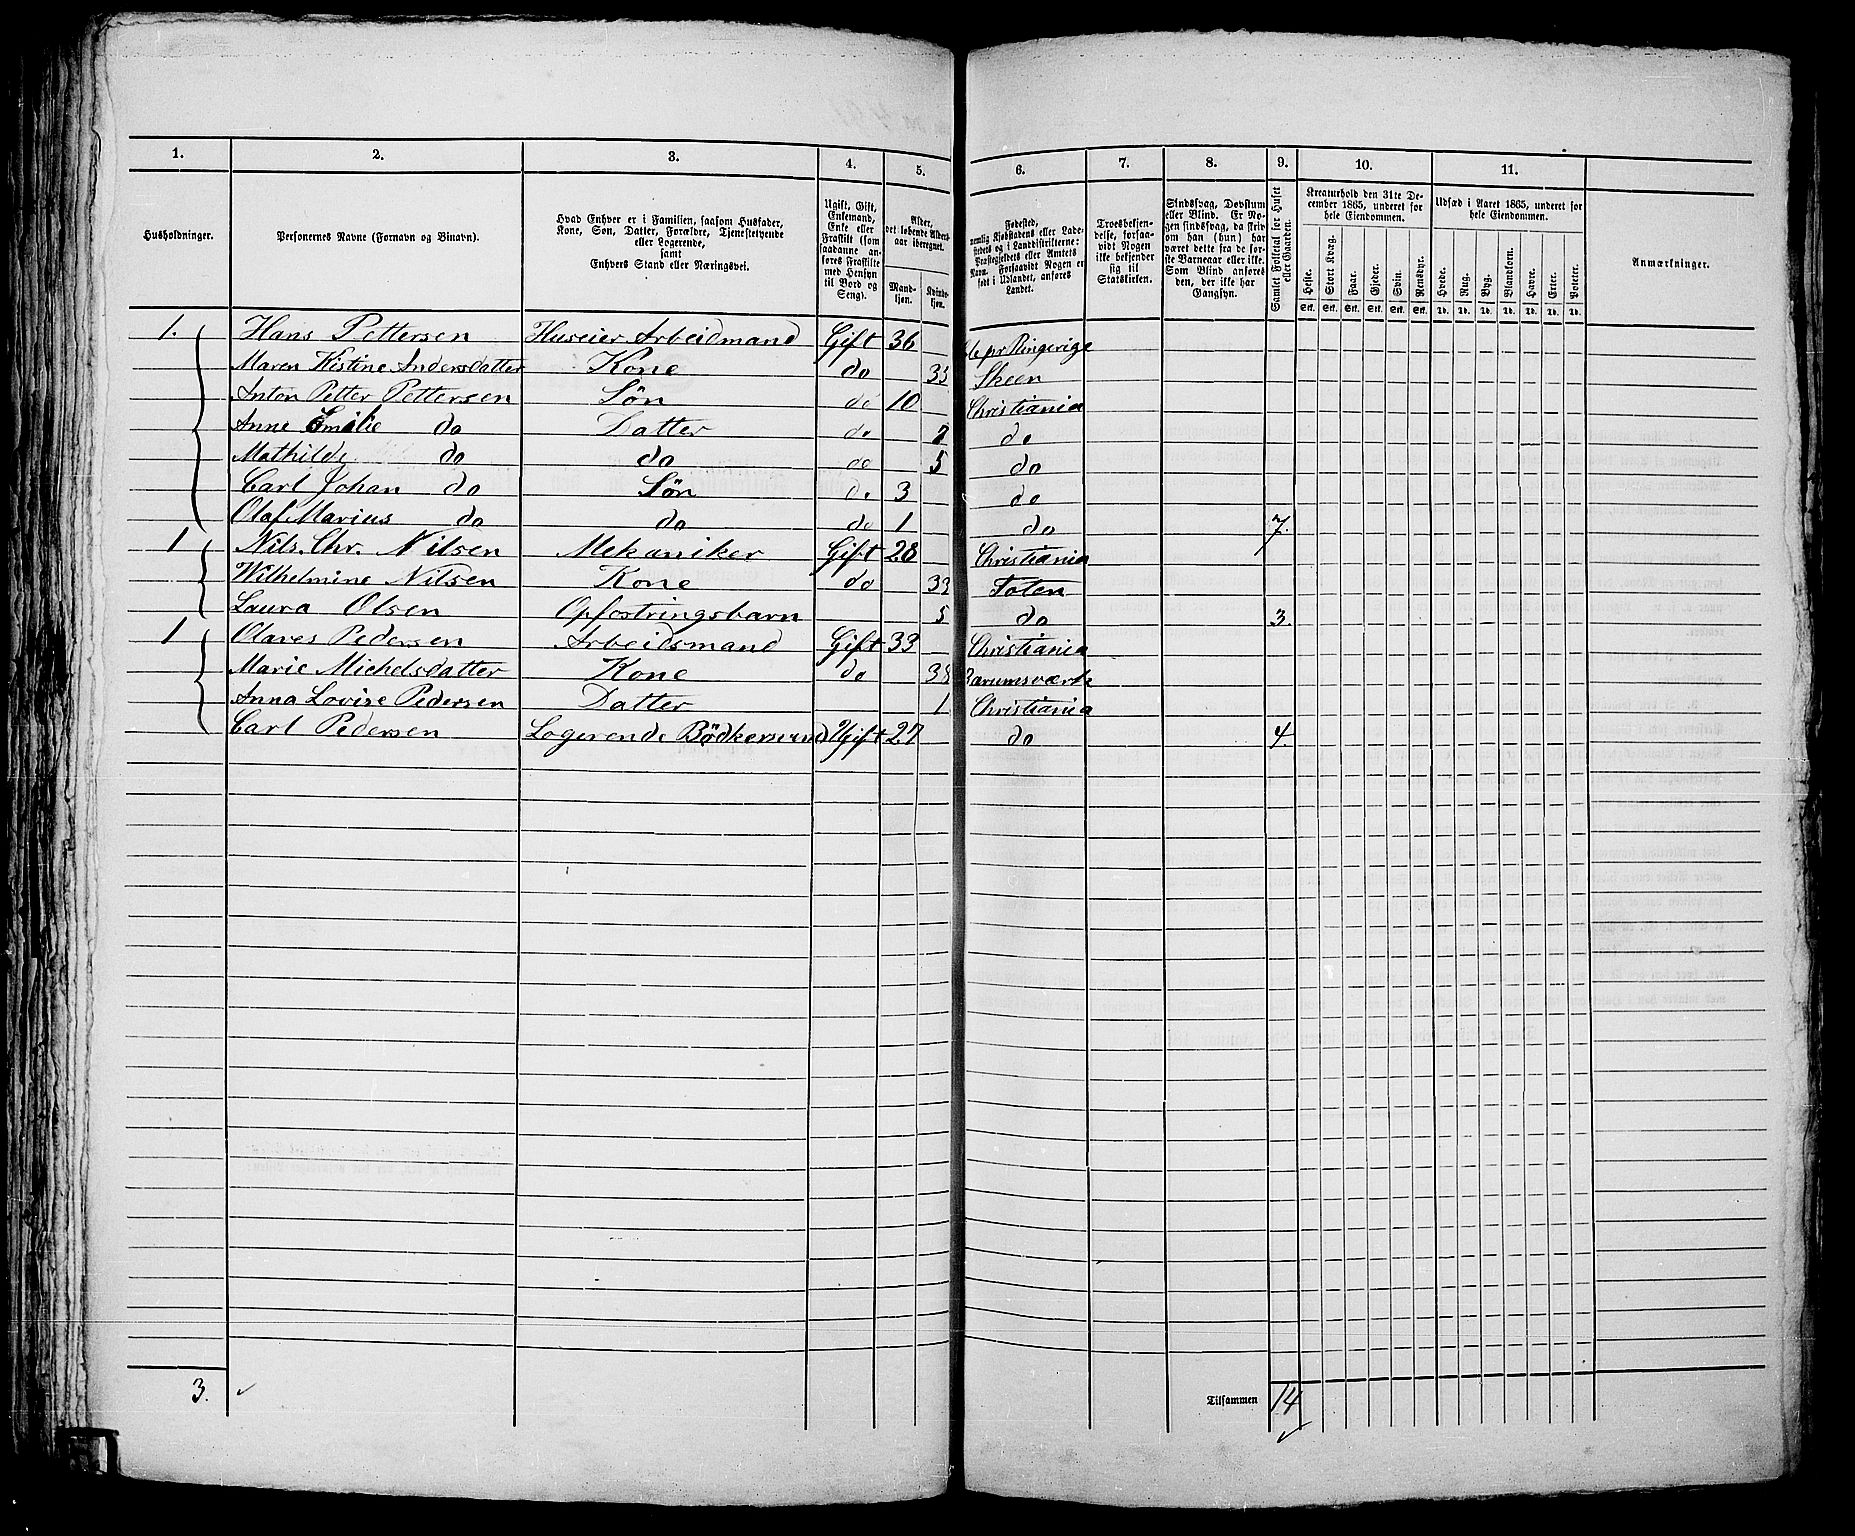 1. 2. 3. 4. 5. 6. 7. 8. 9. 10. 11.
Husholdninger.
Personernes Navne (Fornavn og Binavn).
Hvad Enhver er i Familien, saasom Husfader,
Kone, Søn, Datter, Forældre, Tjenestetyende
eller Logerende,
samt
Enhvers Stand eller Næringsvei.
Ugift, Gift,
Enkemand,
Enke eller
Fraskilt (som
saadanne an-
føres Fraskilte
med Hensyn
til Bord og
Seng).
Alder,
det løbende Alders-
aar iberegnet.
Mand-
kjøn.
Kvinde-
kjøn.
Fødested,
nemlig Kjøbstadens eller Lade-
stedets og i Landdistrikterne:
Præstegjeldets eller Amtets
Navn. Forsaavidt Nogen er
født i Udlandet, anføres
Landet.
Troesbekjen-
delse, forsaa-
vidt Nogen
ikke bekjender
sig til
Statskirken.
Sindssvag, Døvstum
eller Blind. Er No-
gen sindssvag, da skriv
om han (hun) har
været dette fra de før-
ste Barneaar eller ikke.
Som Blind anføres
den, der ikke har
Gangsyn.
Samlet Folketal for Huset
eller Gaarden.
Kreaturhold den 31te De-
cember 1865, underet for
hele Eiendommen.
Heste. Stort Kvæg. Faar. Gjeder. Svin. Rensdyr.
Stk. Stk. Stk. Stk. Stk. Stk.
Udsæd i Aaret 1865, underet for
hele Eiendommen.
Hvede. Rug. Byg. Blandkorn. Havre. Erter. Poteter.
Td. Td. Td. Td. Td. Td. Td.
Anmærkninger.
1. Hans Pettersen Huseier Arbeidmand Gift 36 Ringerige
Maren Kistine Andersdatter Kone do 33 Skeen
Anton Petter Pettersen Søn do 10 Christiania
Anne Emilie do Datter do 7 do
Mathilde do do do 5 do
Carl Johan do Søn do 3 do
Olaf Marius do do do 1 do 7.
1 Nils. Chr. Nilsen Mekaniker Gift 28 Christiania
Wilhelmine Nilsen Kone do 33 Toten
Laura Olsen Opfostringsbarn 5 do 3.
1 Olaves Pedersen Arbeidsmand Gift 33 Christiania
Marie Michelsdatter Kone do 38 Barumsværk
Anna Lovise Pedersen Datter 1 Christiania
Carl Pedersen Logerende Bødkersvend Ugift 27 do 4.
3. Tilsammen 14